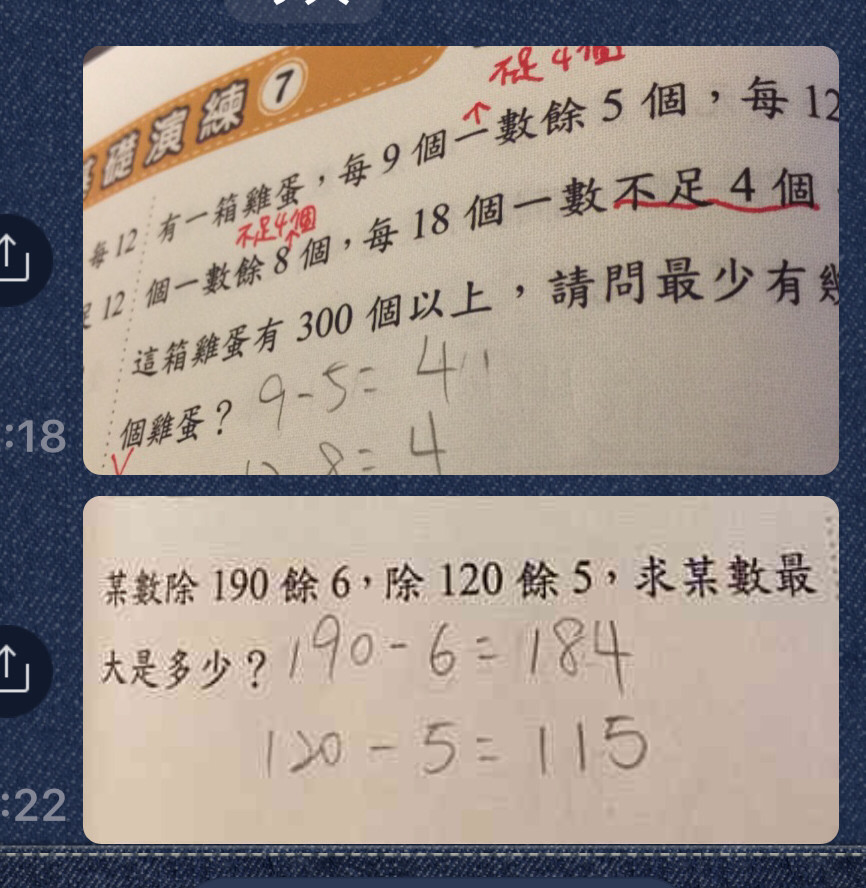 不足4個
基礎演練 7
每12 有一箱雞蛋,每9個一數餘5個,每12
不足4個
足12 個一數餘8個,每18個一數不足4個
這箱雞蛋有300個以上,請問最少有幾
個雞蛋? 9-5=4
8=4
:18
某數除190餘6,除120餘5,求某數最
大是多少? 190-6=184
120-5=115
:22